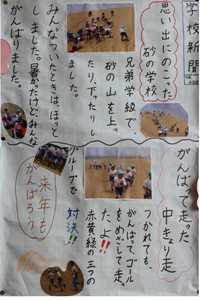 学校新聞
思い出にのこった
砂の学校
兄弟学級で、
砂の山を上っ
たり、下りたりし
ました。
みんなついたときは、ほっと
しました。暑かったけど、みんな
がんばりました。
がんばって走った
中きょり走
つかれても、
がんばって、ゴール
をめざして走っ
たよ!!
赤黄緑の三つの
グループで
対決!!
来年も
がんばろう